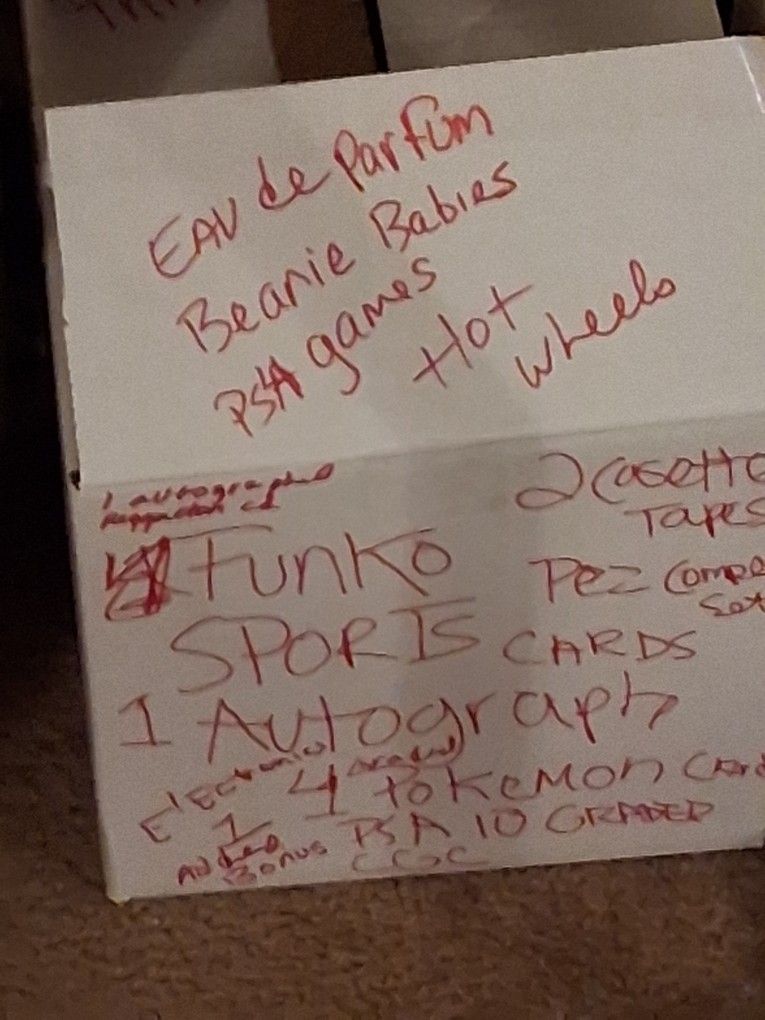 EAU de Parfum
Beanie Babies
PS4 games
Hot
Wheels
1 autographed
2 Casette
Tapes
4 Funko
Pez
Set
SPORTS CARDS
1 Autograph
Electronic
4 graded Pokemon Card
1
PSA 10 GRADED
Bonus CGC